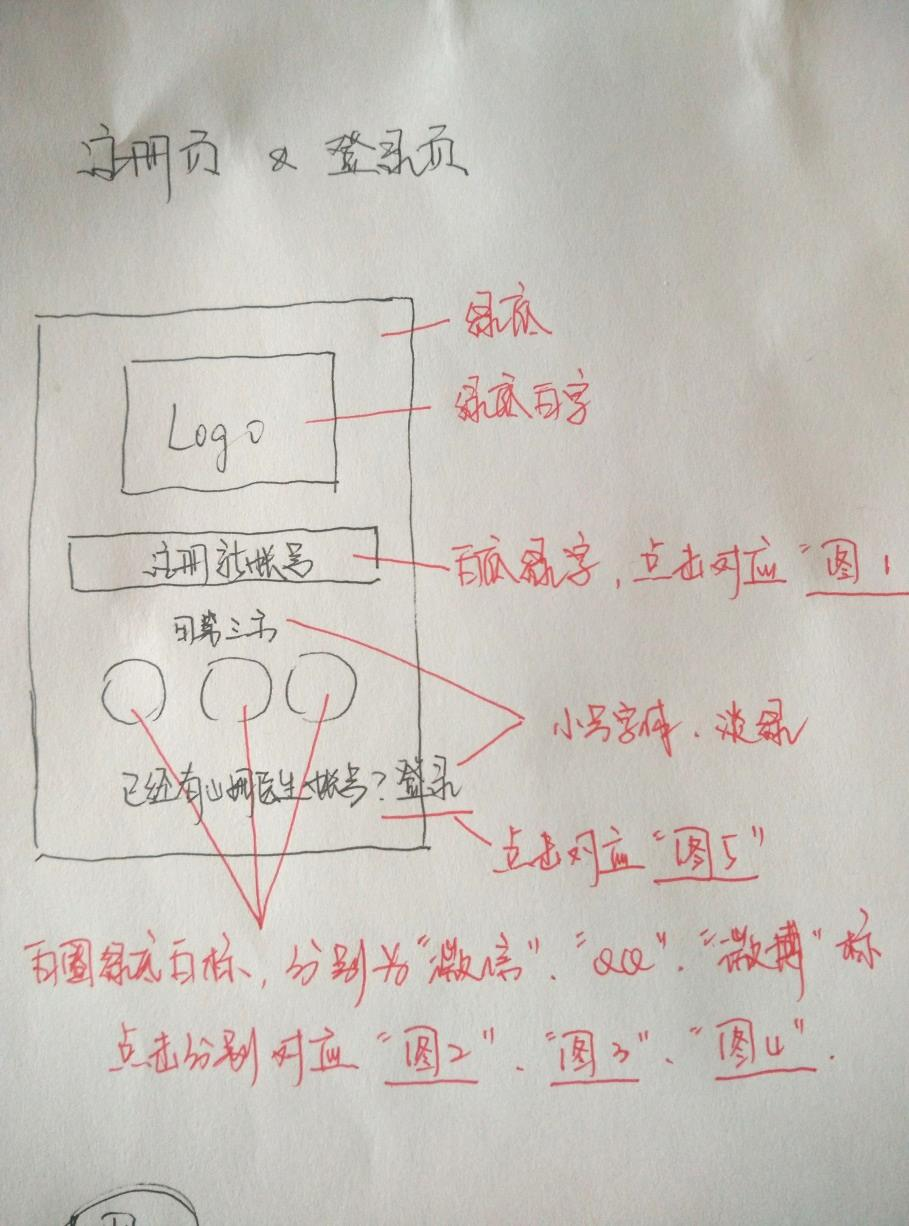 注册页 & 登录页
绿底
Logo
绿底白字
注册新帐号
白底绿字，点击对应“图1
或第三方
小号字体、淡绿
已经有心拥医生帐号？登录
点击对应“图5”
白圈绿底白标，分别为“微信”、“QQ”、“微博”标
点击分别对应“图2”、“图3”、“图4”.